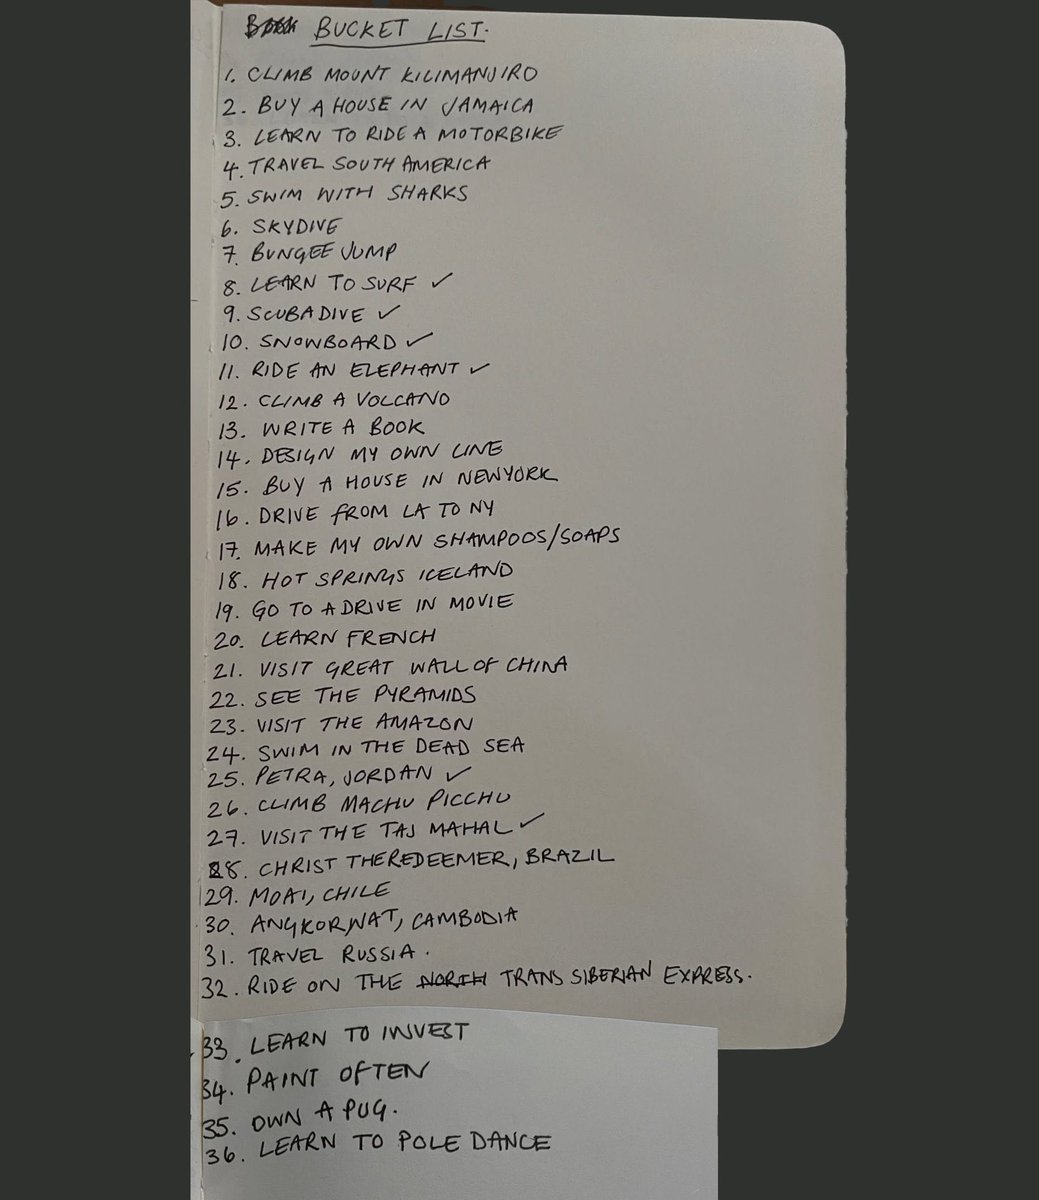 BUCKET LIST.
1. CLIMB MOUNT KILIMANJIRO
2. BUY A HOUSE IN JAMAICA
3. LEARN TO RIDE A MOTORBIKE
4. TRAVEL SOUTH AMERICA
5. SWIM WITH SHARKS
6. SKYDIVE
7. BUNGEE JUMP
8. LEARN TO SURF ✓
9. SCUBADIVE ✓
10. SNOWBOARD ✓
11. RIDE AN ELEPHANT ✓
12. CLIMB A VOLCANO
13. WRITE A BOOK
14. DESIGN MY OWN LINE
15. BUY A HOUSE IN NEWYORK
16. DRIVE FROM LA TO NY
17. MAKE MY OWN SHAMPOOS/SOAPS
18. HOT SPRINGS ICELAND
19. GO TO A DRIVE IN MOVIE
20. LEARN FRENCH
21. VISIT GREAT WALL OF CHINA
22. SEE THE PYRAMIDS
23. VISIT THE AMAZON
24. SWIM IN THE DEAD SEA
25. PETRA, JORDAN ✓
26. CLIMB MACHU PICCHU
27. VISIT THE TAJ MAHAL ✓
28. CHRIST THE REDEEMER, BRAZIL
29. MOAI, CHILE
30. ANGKOR WAT, CAMBODIA
31. TRAVEL RUSSIA.
32. RIDE ON THE NORTH TRANS SIBERIAN EXPRESS.
33. LEARN TO INVEST
34. PAINT OFTEN
35. OWN A PUG.
36. LEARN TO POLE DANCE